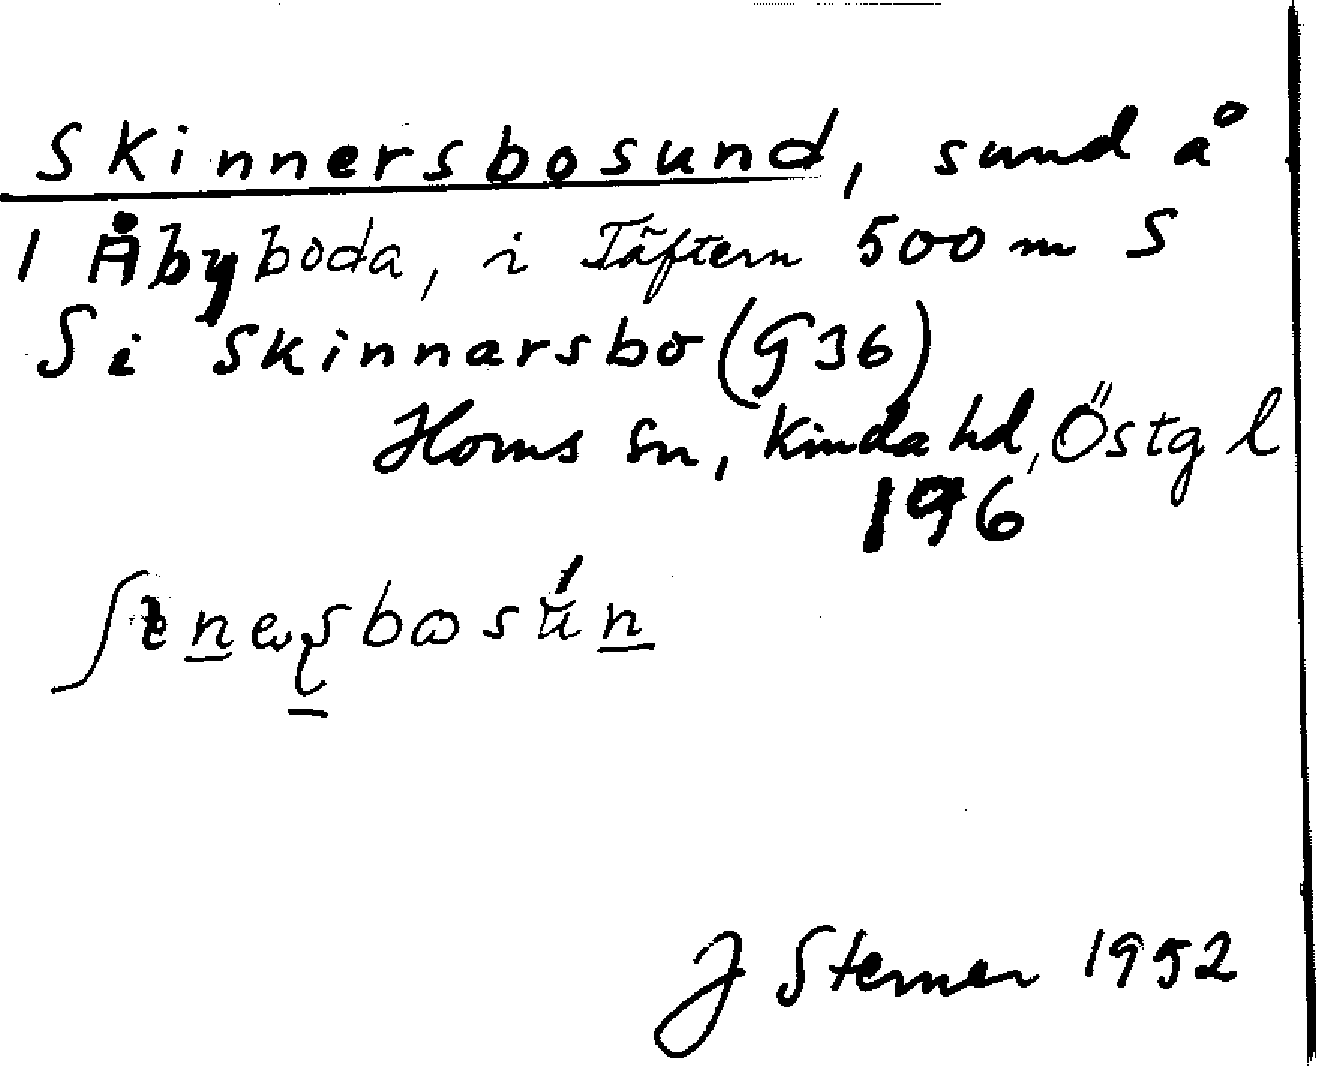 Skinnersbosund, sund å
1 Åbyboda, i Täftern 500 m S
S i Skinnarsbo (G36)
Horns sn, Kinda hd, Östgl
196
J Sterner 1952